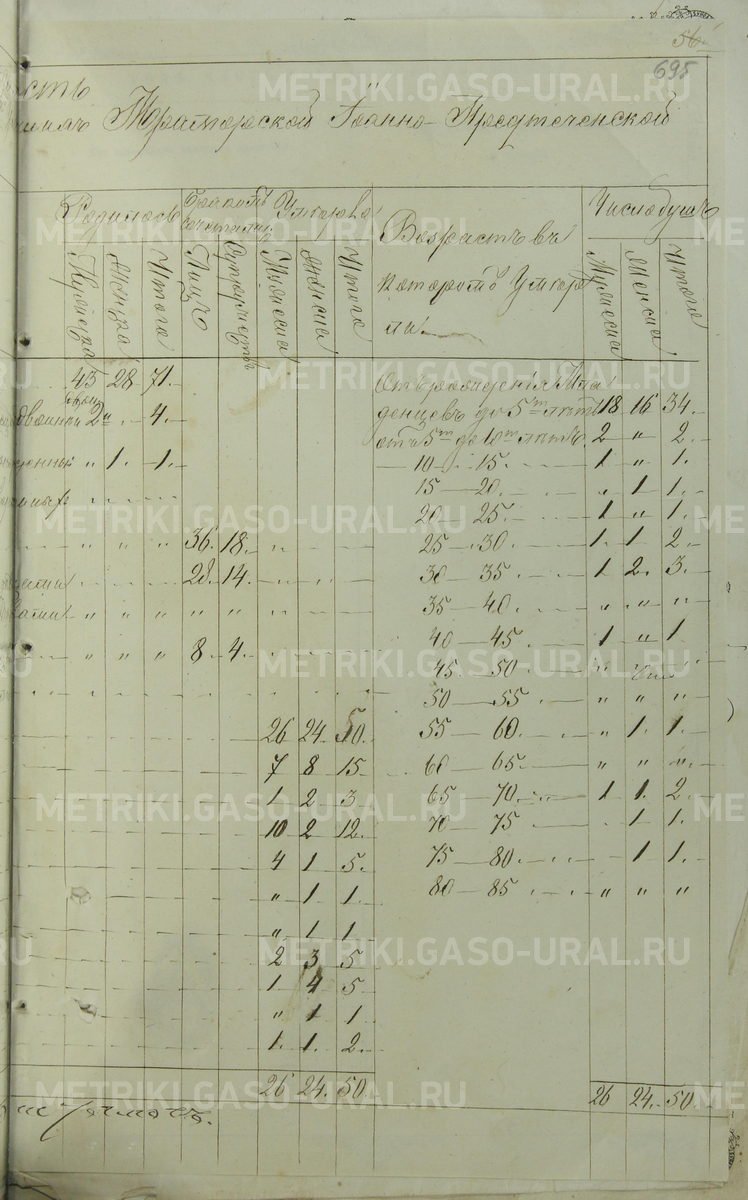 56
695
METRIKI.GASO-URAL.RU
сть
Іоанно-Предтеченской
Родилось
Бракомъ сочетались
Умерло
Возрастъ въ
которомъ Умер
ли
Число душъ
Мужеска
Женска
Итого
Лицъ
Мужеска
Женска
Итого
Мужеска
Женска
Итого
43 28 71.
2 " 4.
" 1. 1.
" " " 36. 18.
28. 14.
" " " " "
" " " 8. 4.
26 24. 50.
7 8 15
1 2 3
10 2 12.
4 1 5.
" 1 1.
" 1 1
2 3 5
1 4 5
" 1 1
1. 1. 2.
26 24. 50
Отъ рожденія Мла
денцевъ до 5ти лѣтъ 18 16 34.
отъ 5ти до 10ти лѣтъ 2 " 2.
10 15. 1 " 1.
15 — 20. " 1 1.
20 25. 1 " 1.
25 — 30 1. 1 2.
30 35. 1 2. 3.
35 — 40. " " "
40 — 45. 1 " 1.
45. — 50 " " "
50 — 55 " " "
55 — 60. " 1. 1.
60 — 65. " " "
65 — 70. 1 1. 2.
70 — 75 1 1.
75 — 80. 1 1.
80 — 85 " " "
26 24. 50.